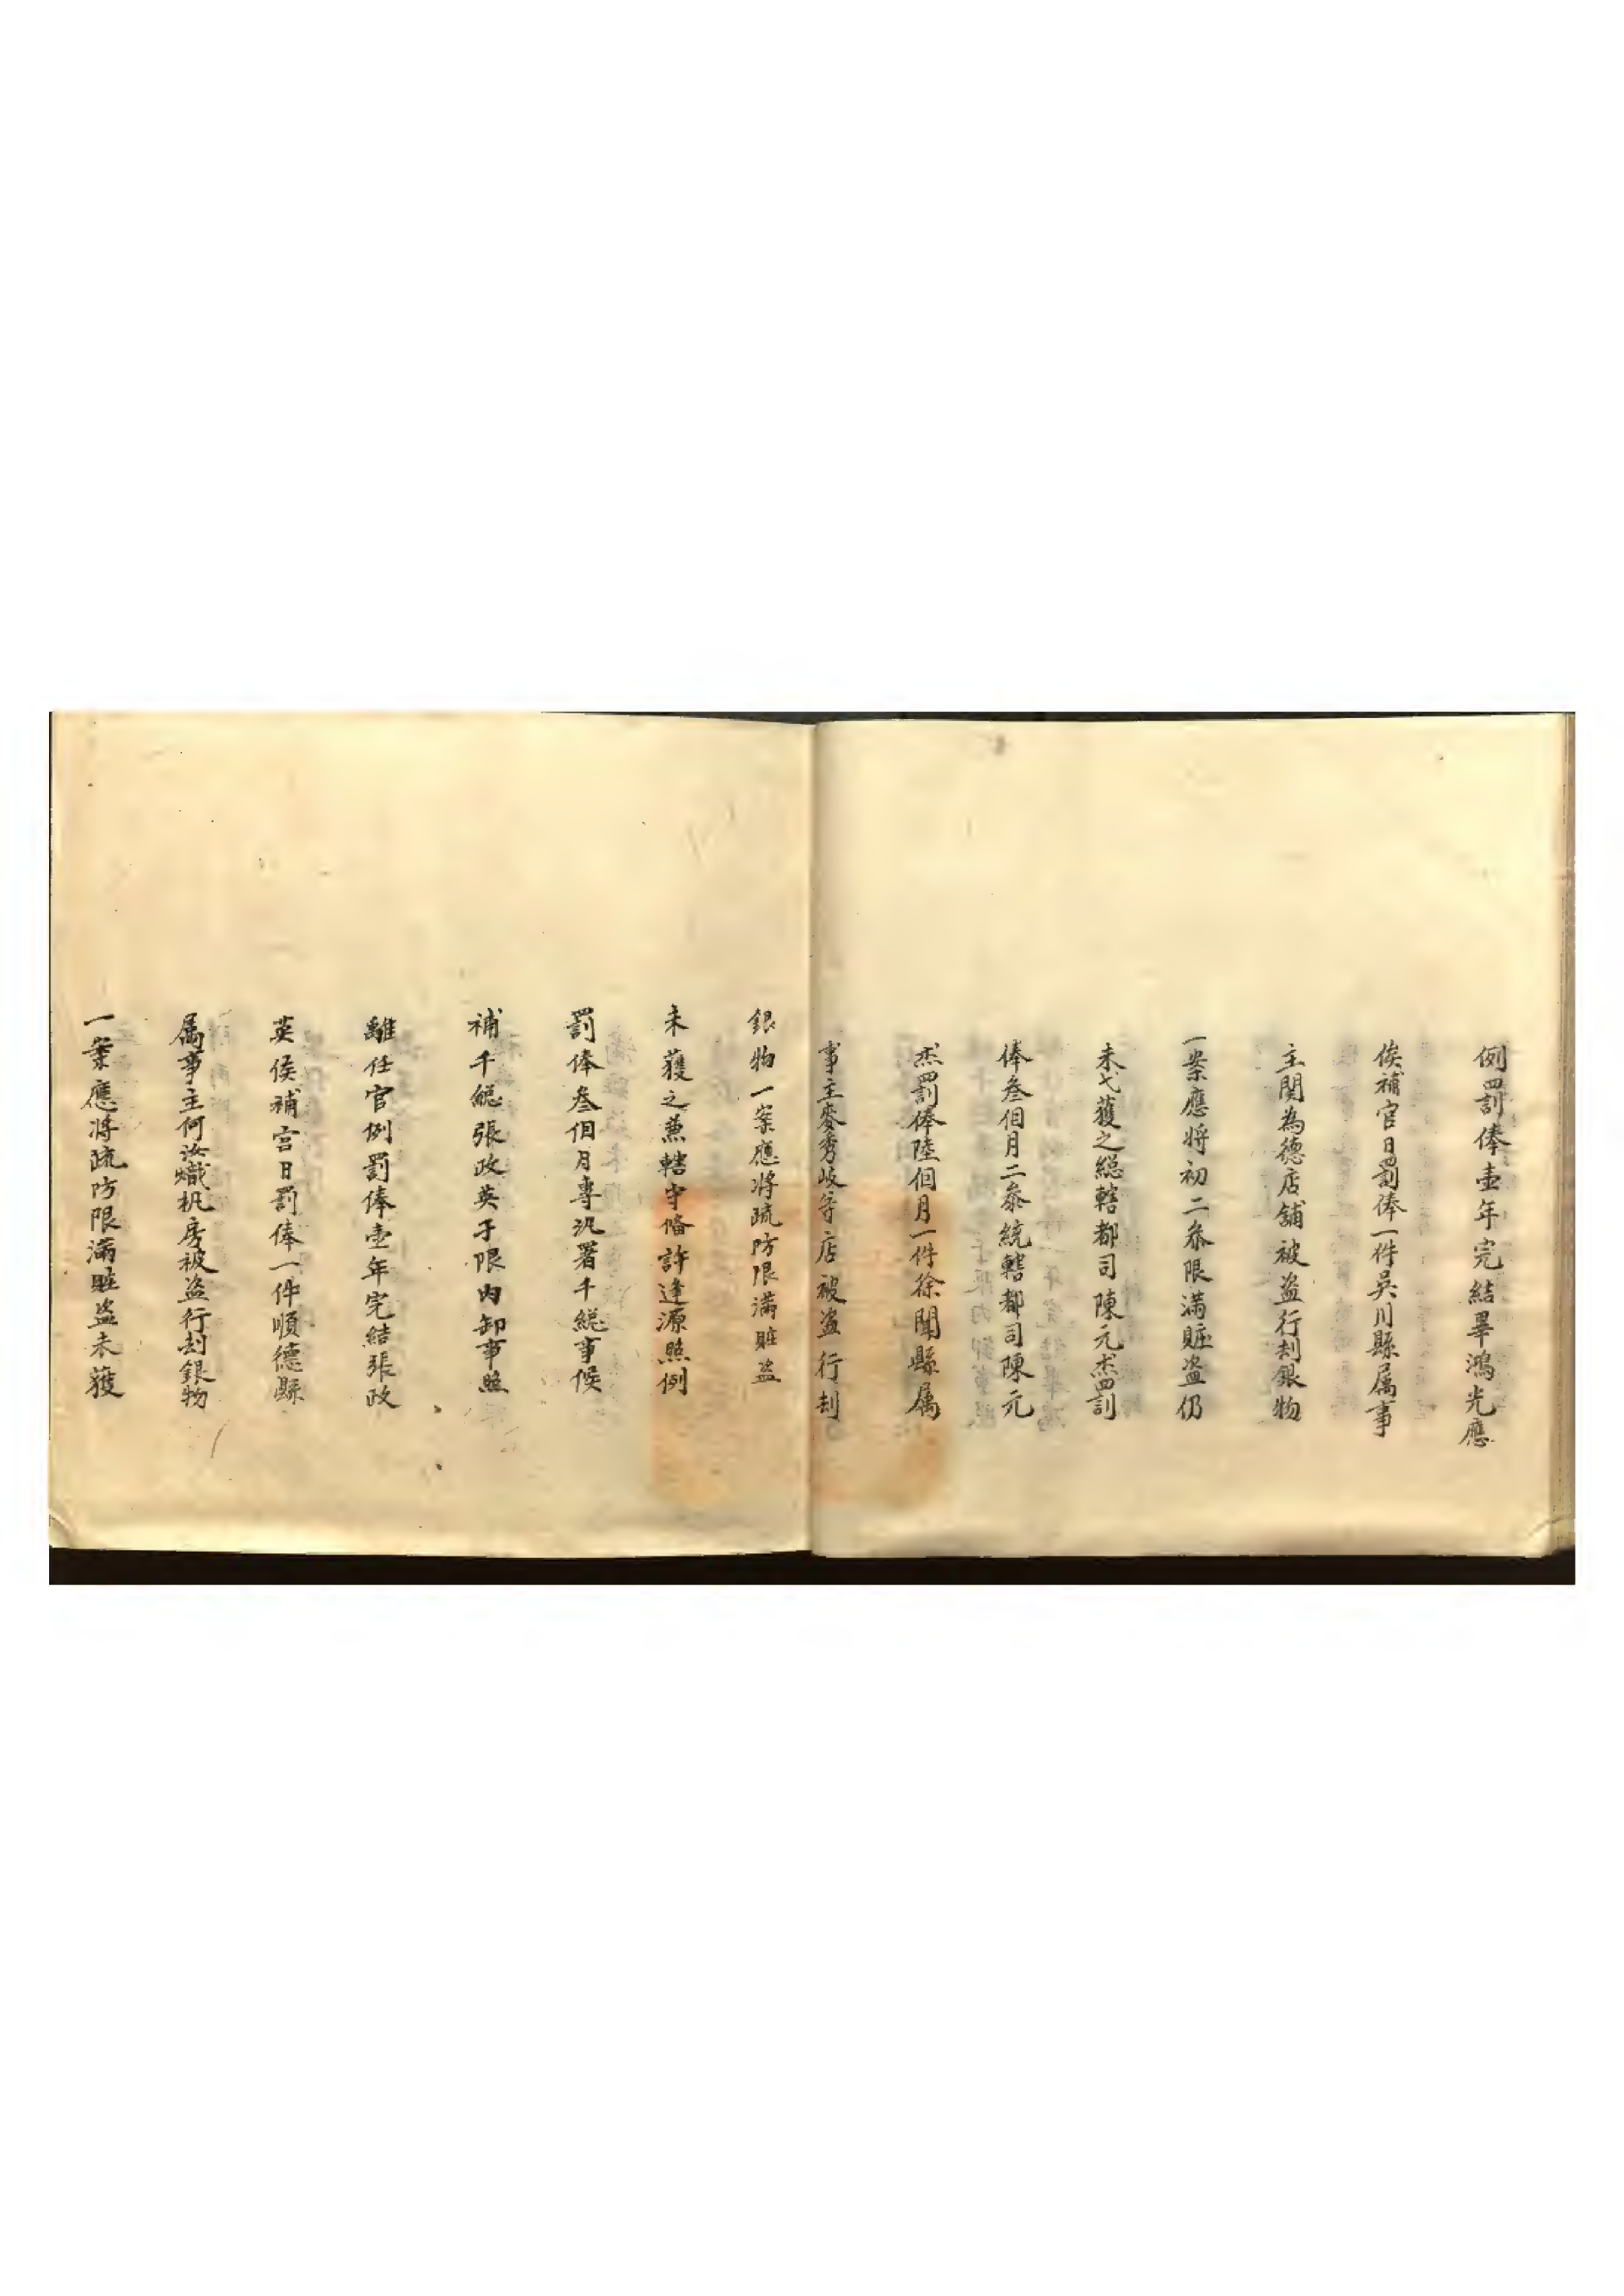 例罰俸壹年完結畢鴻光應
俟補官日罰俸一件吳川縣属事
主関為德店舖被盗行刦銀物
一案應将初二叅限滿賍盗仍
未弋獲之総轄都司陳元杰罰
俸叁個月二叅統轄都司陳元
杰罰俸陸個月一件徐聞縣属
事主麥秀岐等店被盗行刦
銀物一案應将疏防限滿賍盗
未獲之兼轄守俻許逢源照例
罰俸叁個月專汛署千総事候
補千総張政英于限内卸事照
離任官例罰俸壹年完結張政
英俟補官日罰俸一件順德縣
属事主何汝熾机房被盗行刦銀物
一案應将疏防限滿賍盗未獲